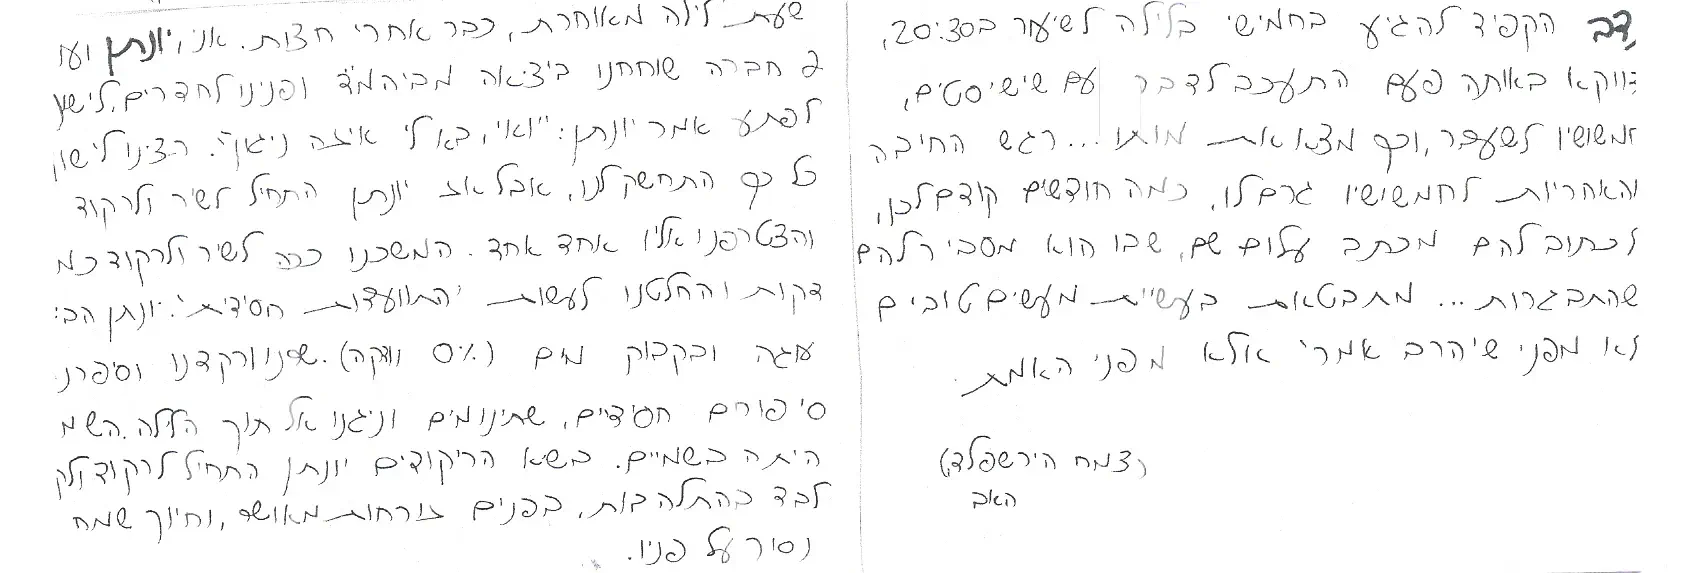 דב הקפיד להגיע בחמישי בלילה לשיעור ב20:30,
דווקא באותה פעם התעכב לדבר עם שישיסטים,
חמשושיו לשעבר, וכך מצאו את מותו... רגש החיבה
והאחריות לחמשושיו גרם לו, כמה חודשים קודם לכן,
לכתוב להם מכתב עלום שם, שבו הוא מסביר להם
שהתבגרות... מתבטאת בעשיית מעשים טובים
לאו מפני שהרב אמר אלא מפני האמת.
(צמח הירשפלד)
האב
שעת לילה מאוחרת, כבר אחרי חצות. אני, יונתן ועו
חברה שוחחנו ביציאה מביהמ"ד ופנינו לחדרים, לישון
לפתע אמר יונתן: "וואי, בא לי איזה ניגון". רצינו לישון
כל כך התחשק לנו, אבל אז יונתן התחיל לשיר ולרקוד
והצטרפנו אליו אחד אחד. המשכנו ככה לשיר ולרקוד כמ
דקות והחלטנו לעשות 'התוועדות חסידית'. יונתן הבי
עוגה ובקבוק מים (0% וודקה). שרנו ורקדנו וסיפרנ
סיפורים חסידיים, שתינו מים וניגנו אל תוך הלילה. השמ
היתה בשמיים. בשיא הריקודים יונתן התחיל לרקוד
לבד בהתלהבות, בפנים זורחות מאושר, וחיוך שמח
נסוך על פניו.